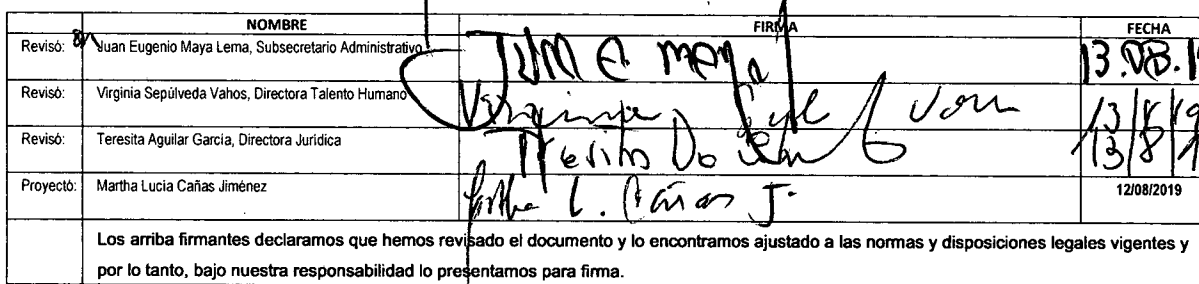 NOMBRE FIRMA FECHA
Revisó: Juan Eugenio Maya Lema, Subsecretario Administrativo 13.08.1
Revisó: Virginia Sepúlveda Vahos, Directora Talento Humano Virginia 13/8/19
Revisó: Teresita Aguilar García, Directora Jurídica Teresita 13/8/1
Proyectó: Martha Lucia Cañas Jiménez L. Cañas J. 12/08/2019
Los arriba firmantes declaramos que hemos revisado el documento y lo encontramos ajustado a las normas y disposiciones legales vigentes y
por lo tanto, bajo nuestra responsabilidad lo presentamos para firma.